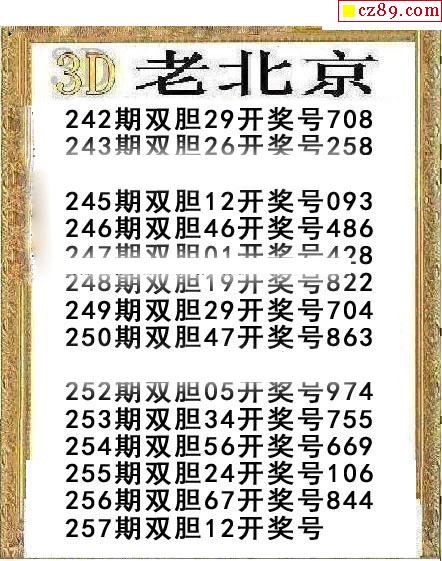 cz89.com
3D 老北京
242期双胆29开奖号708
243期双胆26开奖号258
245期双胆12开奖号093
246期双胆46开奖号486
247期双胆01开奖号428
248期双胆19开奖号822
249期双胆29开奖号704
250期双胆47开奖号863
252期双胆05开奖号974
253期双胆34开奖号755
254期双胆56开奖号669
255期双胆24开奖号106
256期双胆67开奖号844
257期双胆12开奖号